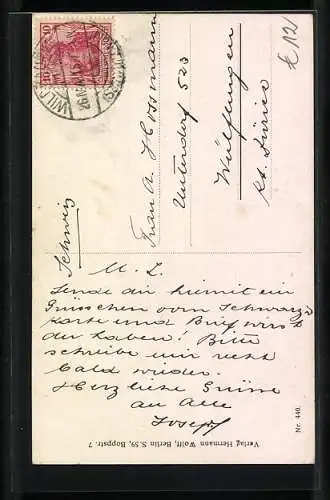 M. L.
Sende dir hiermit ein
Grüsschen vom Schwarz.
Karte und Brief wirst
der haben! Bitte
schreibe mir recht
bald wieder.
Herzliche Grüsse
an Alle
Josepf
Frau A. Hossmann
Unterdorf 523
Wülflingen
Kt. Zürich
Schweiz
Verlag Hermann Wolff, Berlin S. 59, Boppstr. 7
Nr. 440.
10
10